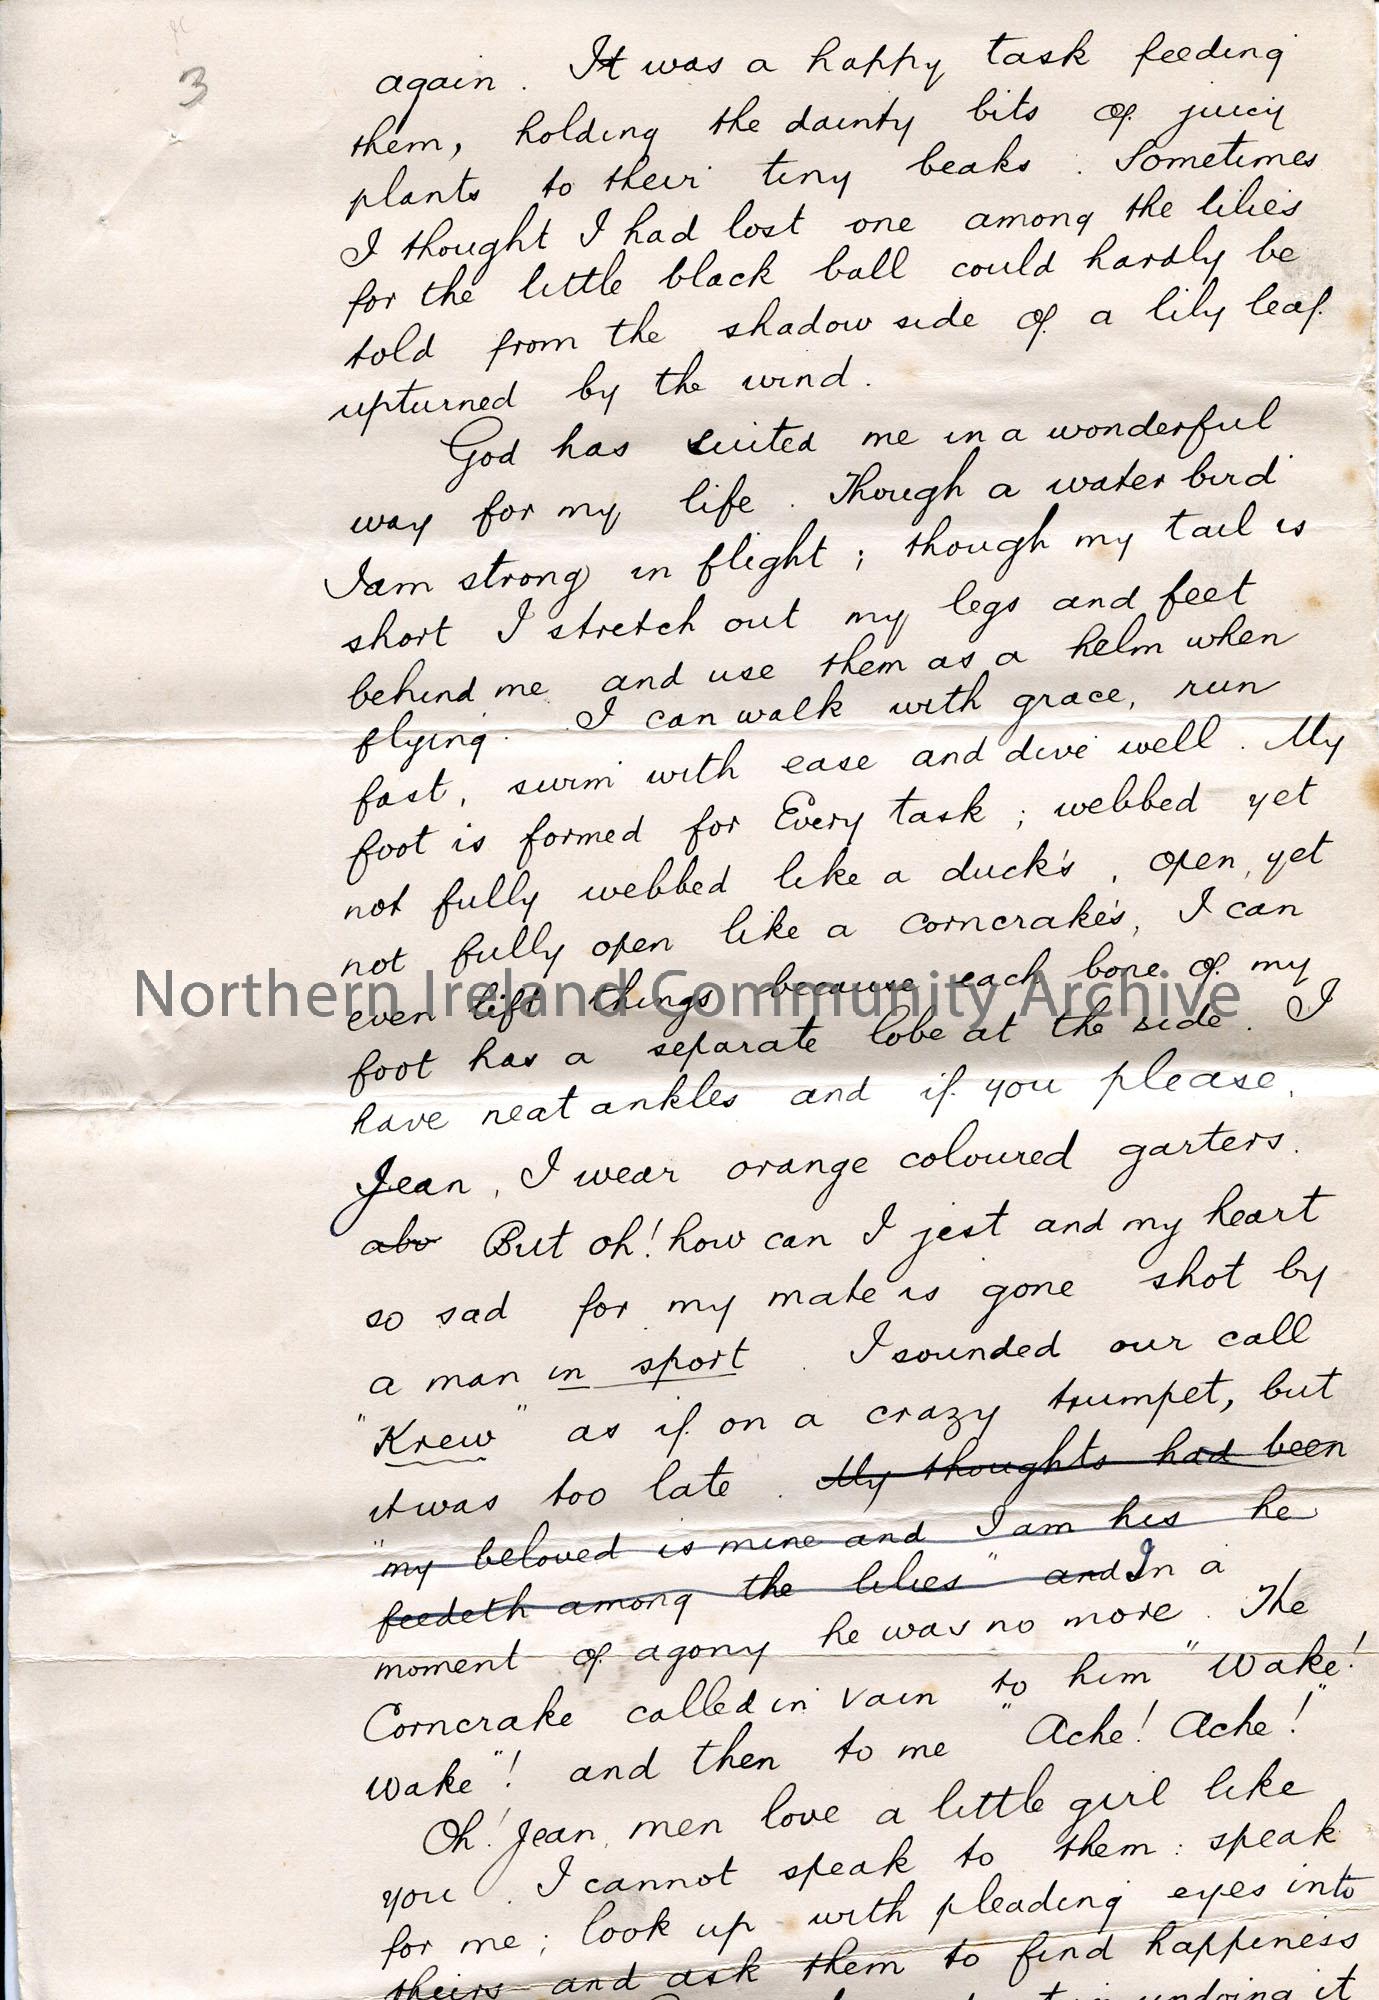 3
again. It was a happy task feeding
them, holding the dainty bits of juicy
plants to their tiny beaks. Sometimes
I thought I had lost one among the lilies
for the little black ball could hardly be
told from the shadow side of a lily leaf
upturned by the wind.
God has suited me in a wonderful
way for my life. Though a water bird
I am strong in flight; though my tail is
short I stretch out my legs and feet
behind me and use them as a helm when
flying. I can walk with grace, run
fast, swim with ease and dive well. My
foot is formed for Every task; webbed yet
not fully webbed like a duck's, open, yet
not fully open like a corncrake's, I can
even lift things because each bone of my
Northern Ireland Community Archive
foot has a separate lobe at the side. I
have neat ankles and if you please,
Jean, I wear orange coloured garters.
abo But oh! how can I jest and my heart
so sad for my mate is gone shot by
a man in sport. I sounded our call
"Krew" as if on a crazy trumpet, but
it was too late. My thoughts had been
"my beloved is mine and I am his he
feedeth among the lilies" and In a
moment of agony he was no more. The
Corncrake called in vain to him "Wake!
Wake"! and then to me "Ache! Ache!"
Oh! Jean, men love a little girl like
you. I cannot speak to them: speak
for me; look up with pleading eyes into
theirs and ask them to find happiness
in undoing it